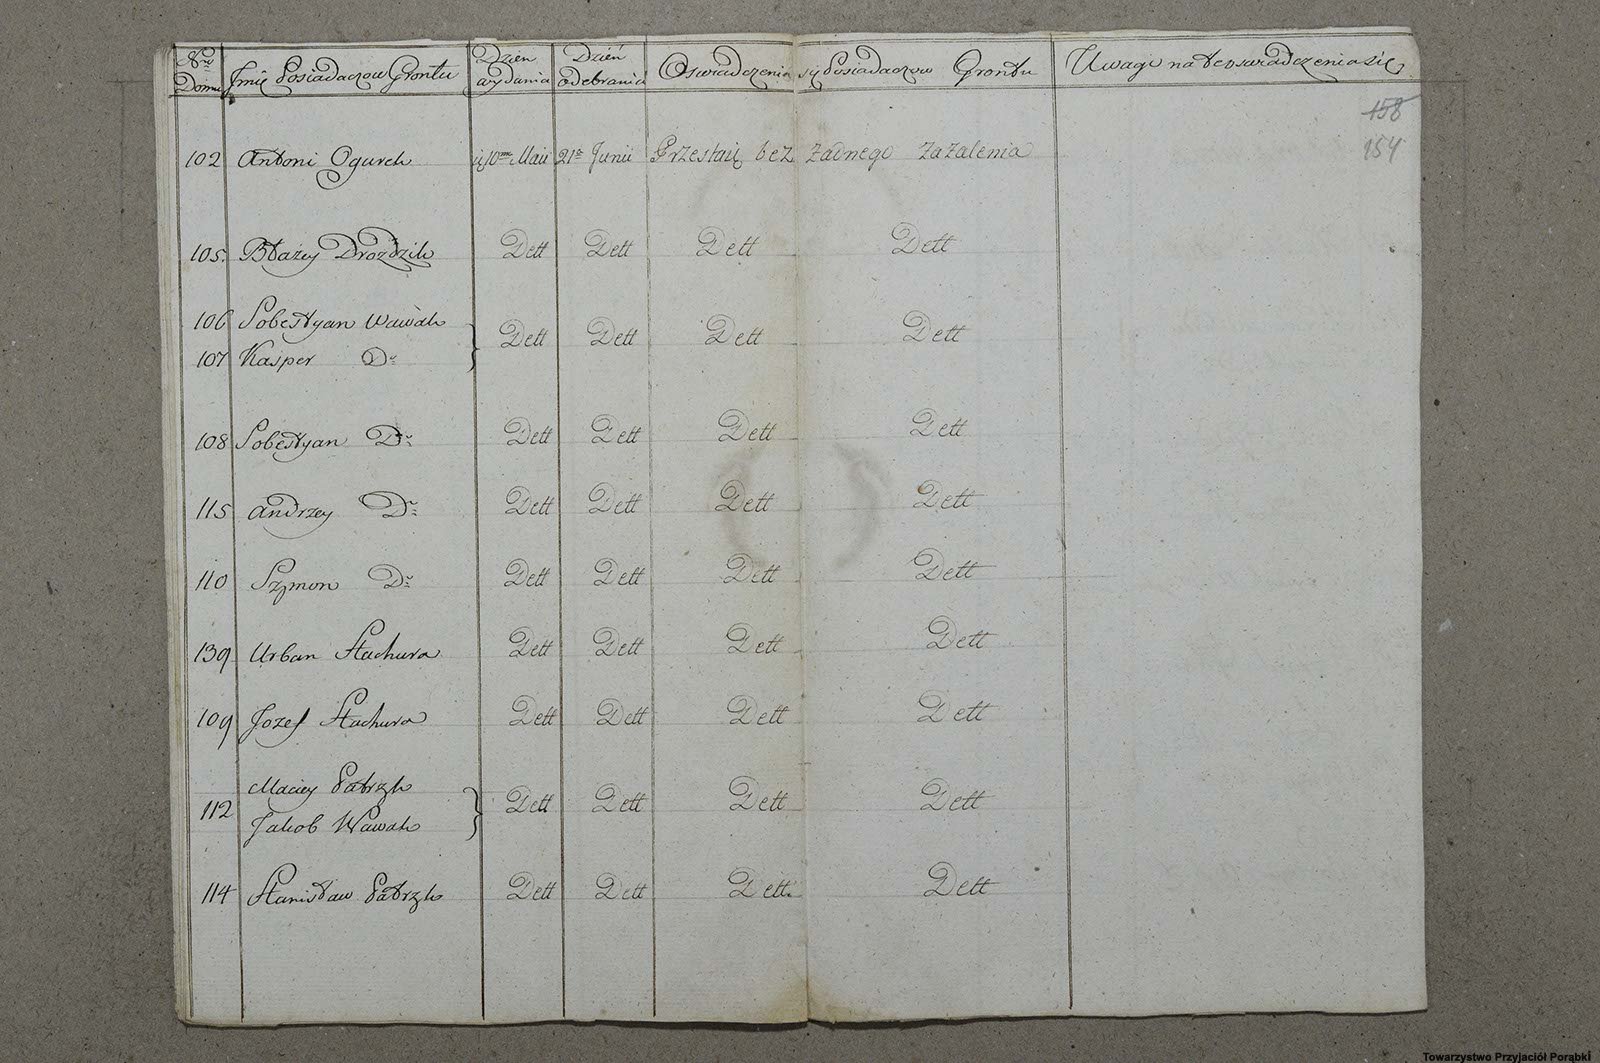 Nro Domu Imię Posiadaczow Grontu Dzien wydania Dzień odebrania Oswiadczenia się Posiadaczow Grontu Uwagi na te oswiadczenia się
158
154
102 Antoni Ogurek 10ma Maii 21a Junii Przestaię bez żadnego zażalenia
105. Błażey Drożdzik Dett Dett Dett Dett
106 Sobestyan Wawak
107 Kasper Do } Dett Dett Dett Dett
108 Sobestyan Do Dett Dett Dett Dett
115 Andrzey Do Dett Dett Dett Dett
110 Szymon Do Dett Dett Dett Dett
139 Urban Stachura Dett Dett Dett Dett
109 Jozef Stachura Dett Dett Dett Dett
Maciey Patrzyk
112 } Dett Dett Dett Dett
Jakob Wawak
114 Stanisław Patrzyk Dett Dett Dett Dett
Towarzystwo Przyjaciół Porąbki